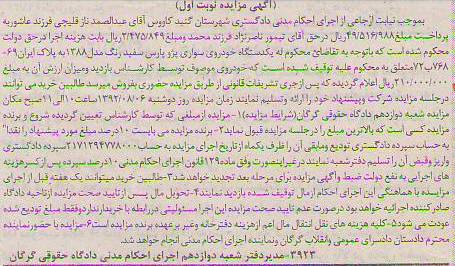 (آگهی مزایده نوبت اول)
بموجب نیابت ارجاعی از اجرای احکام مدنی دادگستری شهرستان گنبد کاووس آقای عبدالصمد ناز قلیچی فرزند عاشوربه
پرداخت مبلغ ۴۹/۵۱۶/۹۸۸ ریال درحق آقای تیمور ناصرنژاد فرزند محمد ومبلغ ۲/۴۷۵/۸۴۹ ریال بابت هزینه اجرا درحق دولت
محکوم شده است که باتوجه به تقاضای محکوم له یکدستگاه خودروی سواری پژو پارس سفید رنگ مدل ۱۳۸۸ به پلاک ایران ۶۹-
۷۶۸ب۷۲ متعلق به محکوم علیه توقیف شده است که خودروی موصوف توسط کارشناس بازدید ومیزان ارزش آن به مبلغ
۲۱۰/۰۰۰/۰۰۰ ریال اعلام گردیده که پس ازجری تشریفات قانونی از طریق مزایده حضوری بفروش میرسد طالبین خرید می توانند
درجلسه مزایده شرکت وپیشنهاد خود را ارائه تسلیم نمایند زمان مزایده روز دوشنبه ۱۳۹۲/۰۸/۰۶ ساعت ۱۰ الی ۱۱ صبح مکان
مزایده شعبه دوازدهم دادگاه حقوقی گرگان (شرایط مزایده) ۱- مزایده ازمبلغی که توسط کارشناس تعیین گردیده شروع و برنده
مزایده کسی است که بالاترین مبلغ را درجلسه مزایده قبول نماید ۲- برنده مزایده می بایست ۱۰ درصد مبلغ مورد پیشنهاد را نقدا
به حساب سپرده دادگستری تودیع ومابقی آن را ظرف یکماه از تاریخ اجرای مزایده به حساب ۲۱۷۱۲۹۴۷۷۸۰۰۰ سپرده دادگستری
واریز وفیش آن را تسلیم دفتر شعبه نمایند در غیراینصورت وفق ماده ۱۲۹ قانون اجرای احکام مدنی ۱۰ درصد سپرده پس از کسرهزینه
های اجرایی به نفع دولت ضبط وآگهی مزایده برای مرحله بعد تجدید خواهد شد ۳- طالبین خرید میتوانند یک هفته قبل از اجرای
مزایده با هماهنگی این اجرای احکام ازمال توقیف شده بازدید نمایند ۴- تحویل مال پس از تایید صحت مزایده ازناحیه دادگاه
صادر کننده اجرائیه خواهد بود درصورت عدم تایید صحت مزایده این اجرا مسئولیتی دررابطه با خریدارندارد وفقط مبلغ تودیع شده
عودت می شود ۵- کلیه هزینه های نقل انتقال مال اعم ازهزینه دفترخانه وغیر برعهده برنده مزایده است ۶- مزایده با حضورنماینده
محترم دادستان دادسرای عمومی وانقلاب گرگان ونماینده اجرای احکام مدنی انجام خواهد شد.
۳۹۲۳- مدیردفتر شعبه دوازدهم اجرای احکام مدنی دادگاه حقوقی گرگان